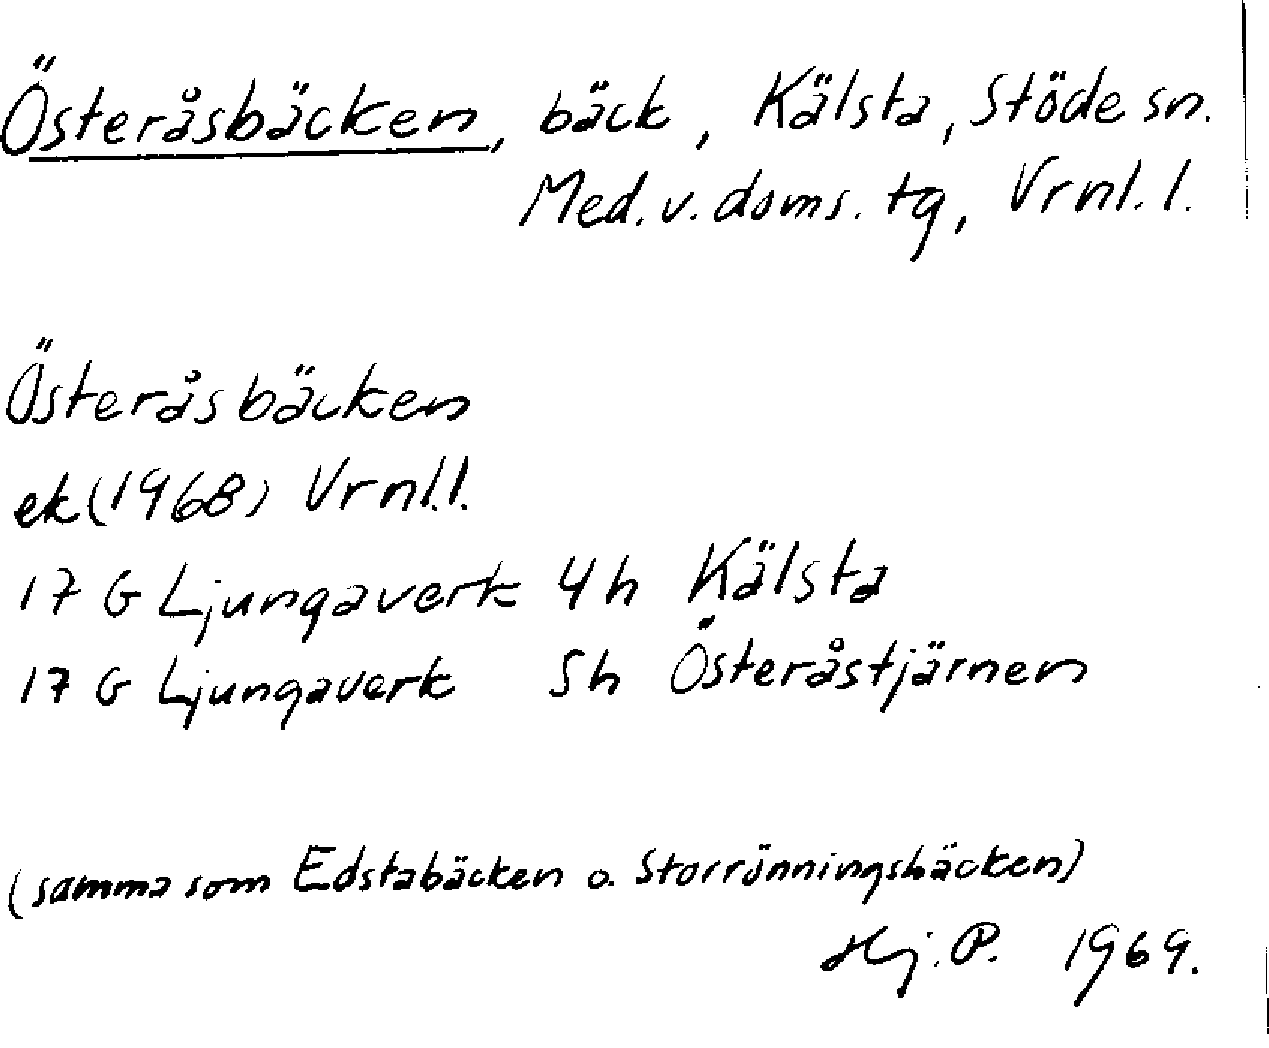 Österåsbäcken, bäck, Kälsta, Stöde sn.
Med. v. doms. tg, Vrnl. l.
Österåsbäcken
ek (1968) Vrnl. l.
17 G Ljungaverk 4h Kälsta
17 G Ljungaverk 5h Österåstjärnen
(samma som Edstabäcken o. Storrönningsbäcken)
Hj. P. 1969.